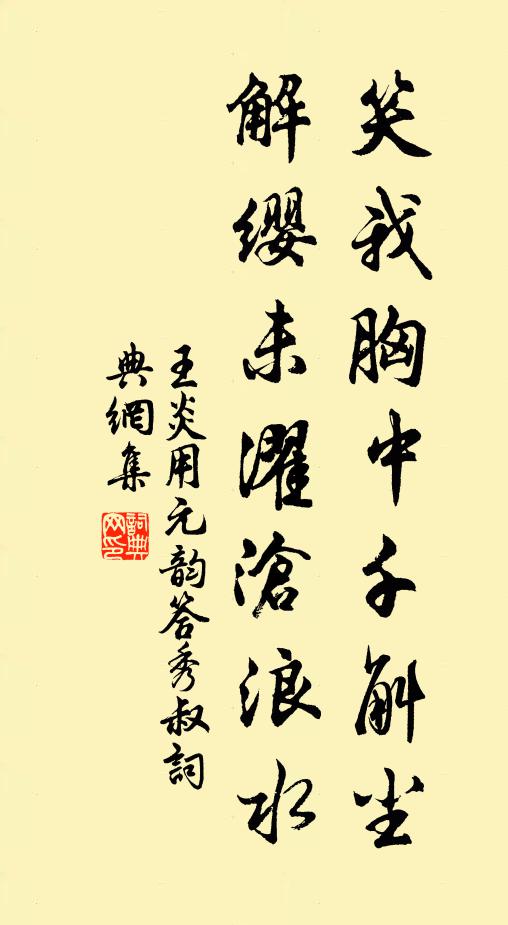 笑我胸中千斛尘
解缨未濯滄浪水
王炎用元韵答秀叔詞
典網集
詞典网印